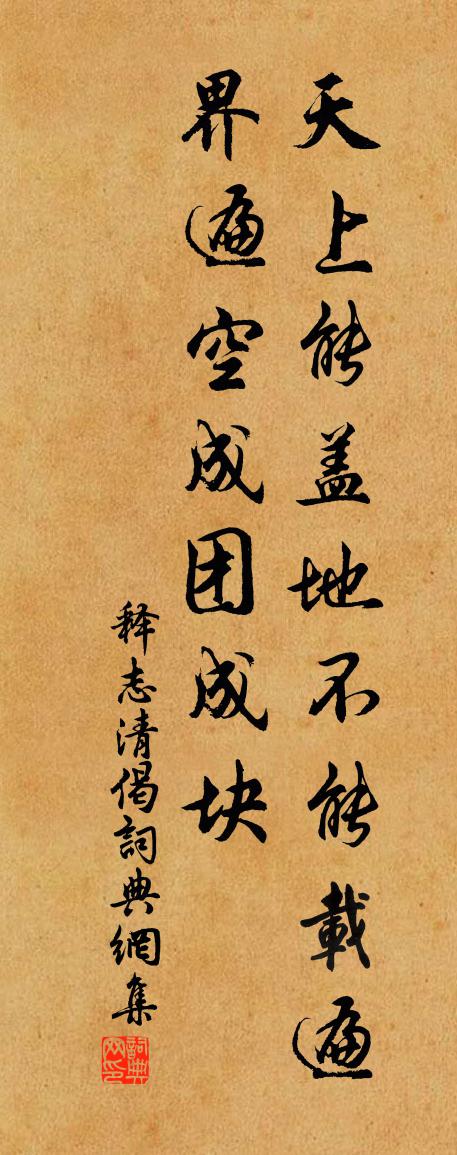 天上能盖地不能載遍
界遍空成团成块
释志清偈詞典網集
詞典网印